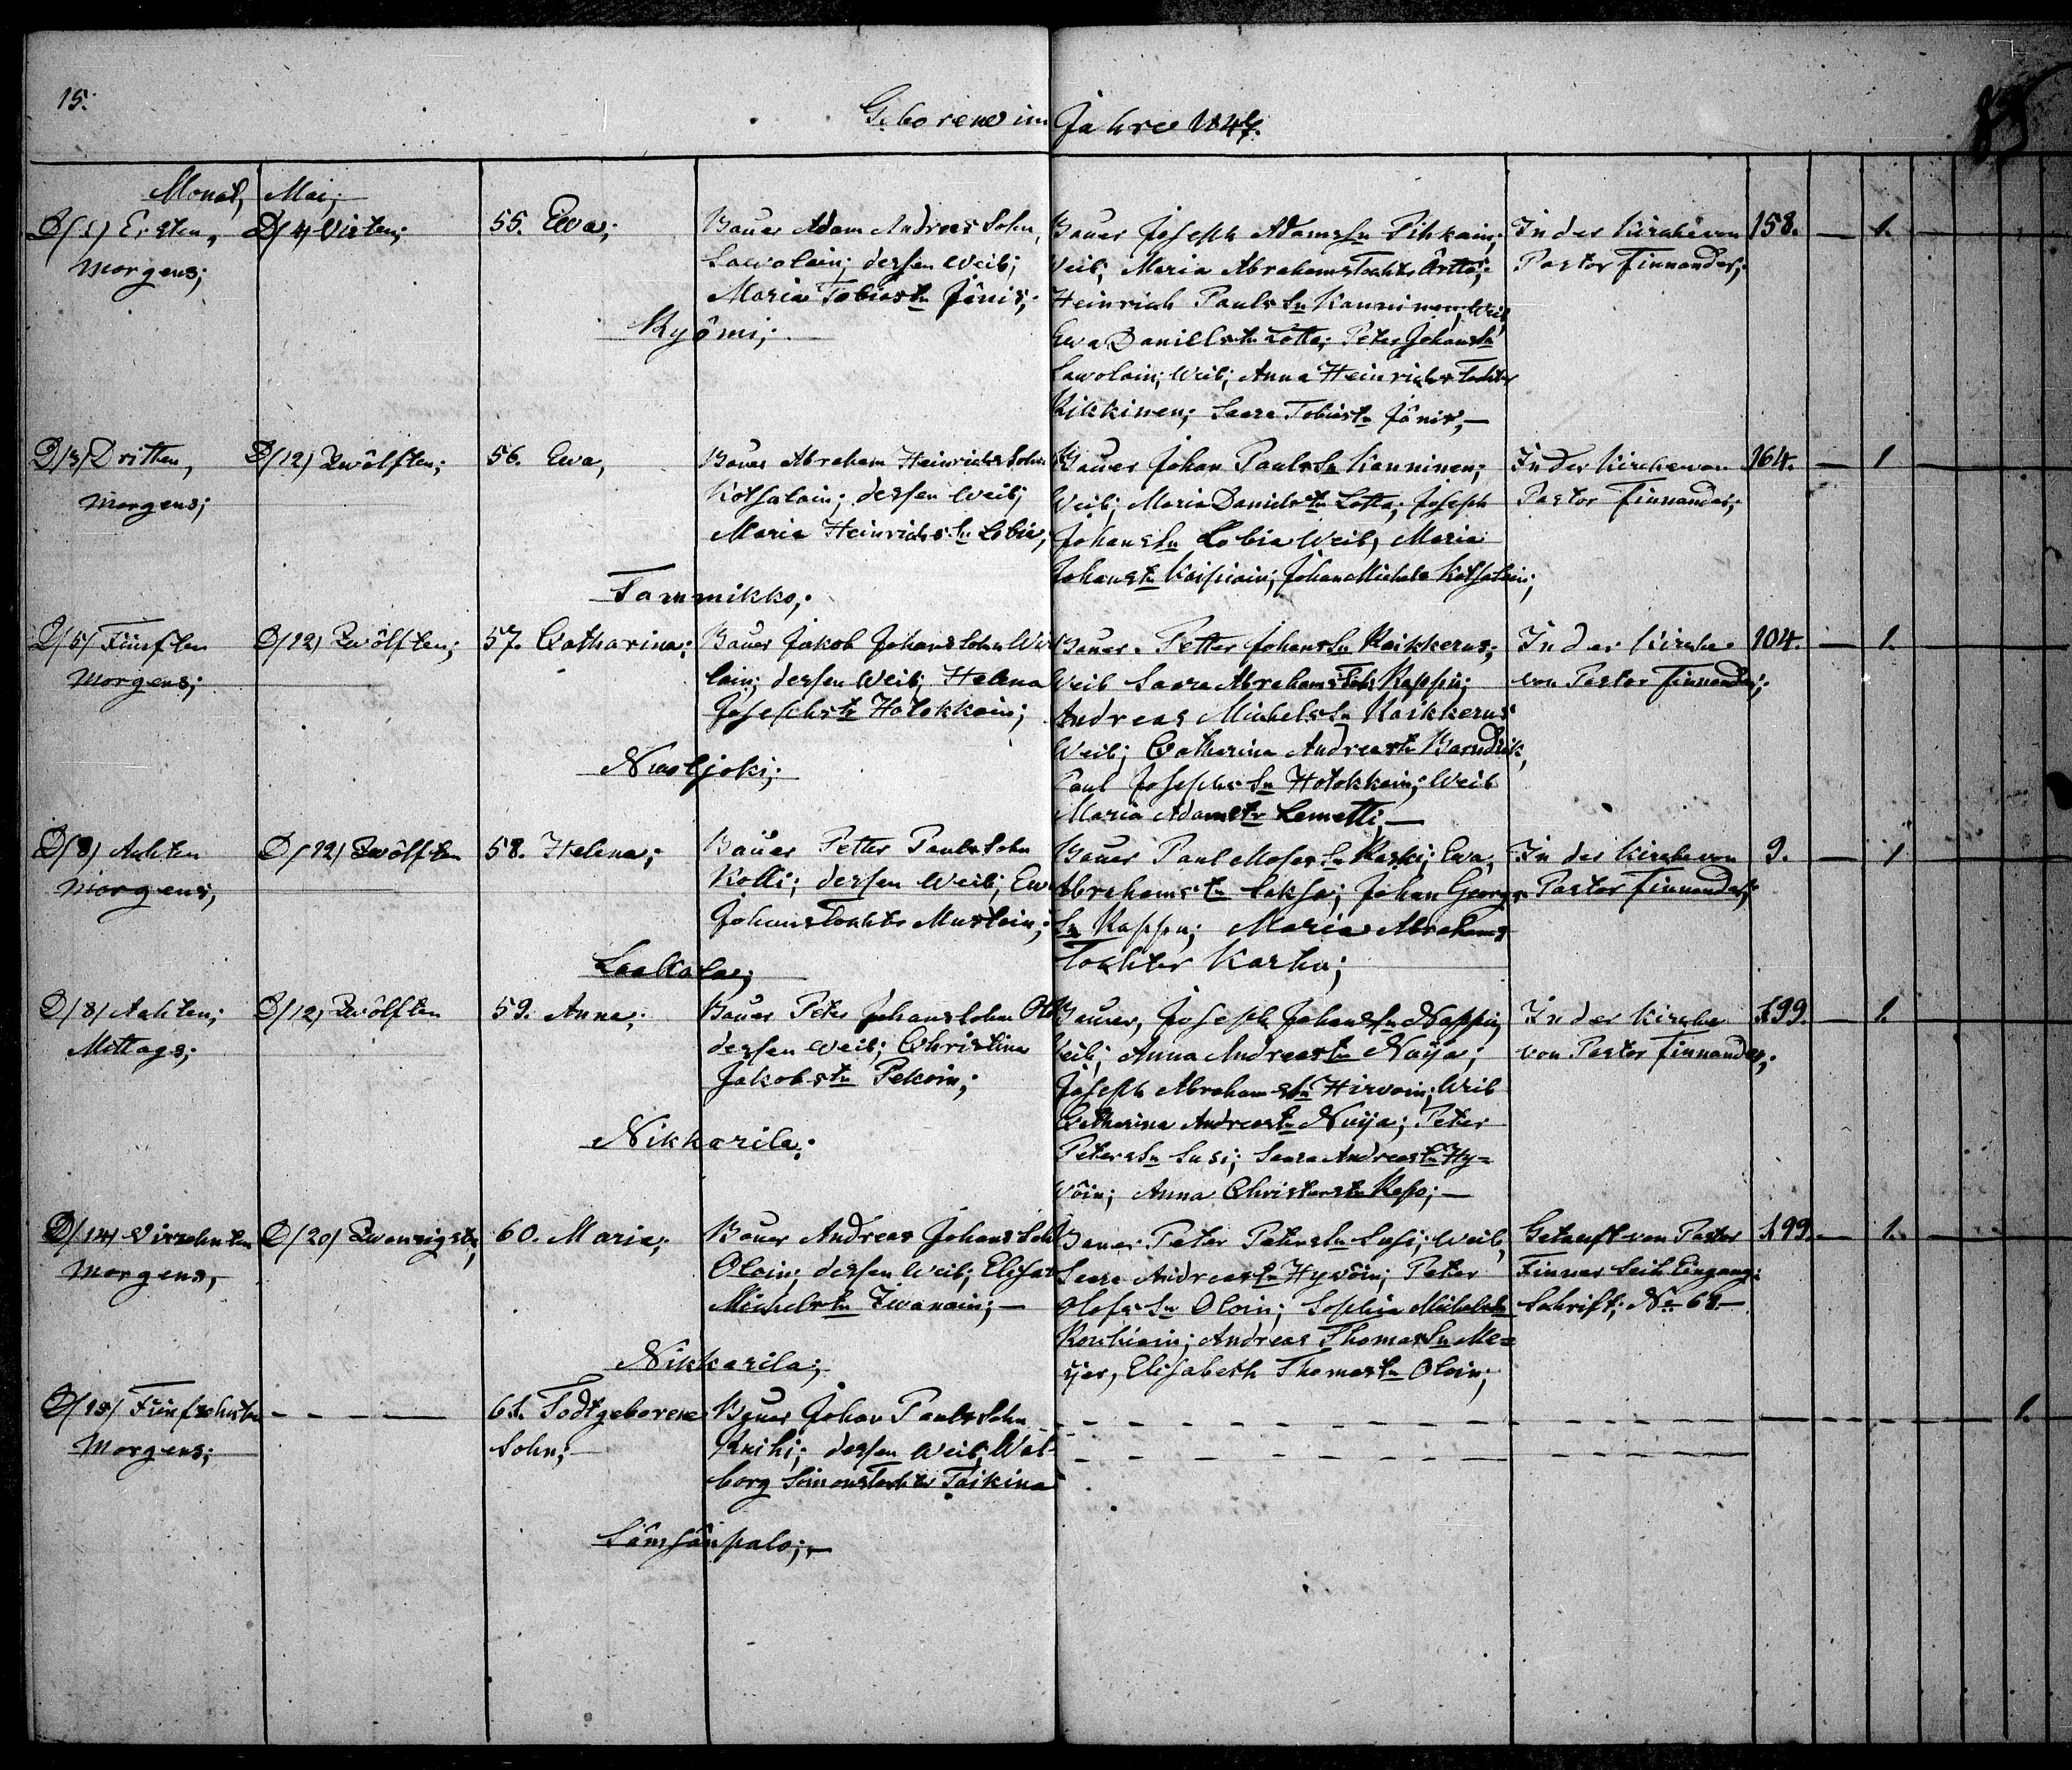 15.
Geborene im Jahre 1847.
Monat, Mai;
D/1/ Ersten,
Morgens;
D/4/ Virten;
55. Ewa;
Bauer Adam Andreas Sohn,
Sawolain; dessen Weib;
Maria Tobiastr Jönis;
Kyömi;
Bauer Joseph Adams Sn Pihkain;
Weib; Maria Abrahams Tochter Ärttö;
Heinrich Pauls Sn Kanninen; Weib,
Ewa Daniels tr Lotta; Peter Johans Sn
Sawolain; Weib; Anna Heinrichs Tochter
Kikkinen; Saara Tobias tr Jönis;
In der Kirche von
Pastor Finnander;
158. — 1.
D/3/ Dritten,
Morgens;
D/12/ Zwölften;
56. Ewa,
Bauer Abraham Heinrichs Sohn
Kotsalain; dessen Weib;
Maria Heinrichs Lobia;
Tammikko;
Bauer Johan Pauls Sn Kanninen;
Weib; Maria Daniels tr Lotta; Joseph
Johans Sn Lobia Weib, Maria
Johans tr Kaipiain; Johan Michels Kotsalain;
In der Kirche von
Pastor Finnander;
164. — 1
D/5/ Fünften
Morgens;
D/12/ Zwölften;
57. Catharina;
Bauer Jakob Johans Sohn
lain; dessen Weib; Helena
Josephs tr Hotokkain;
Nuoljoki;
Bauer Petter Johans Sn Kaikkerus;
Weib Saara Abrahams Toht Rappu;
Andreas Michels Sn Kaikkerus
Weib; Catharina Andreas tr
Paul Josephs Sn Hotokkain; Weib
Maria Adams tr Lemetti; —
In der Kirche
von Pastor Finnander;
104. — 1.
D/8/ Achten
Morgens;
D/12/ Zwölften
58. Helena;
Bauer Petter Pauls Sohn
Kolli; dessen Weib; Ewa
Johans Tochter Mustoin;
Laakola;
Bauer Paul Moses Sn Kaski; Ewa,
Abrahams tr Saksa; Johan Georgs
Sn Rappu; Maria Abrahams
Tochter Karhu;
In der Kirche von
Pastor Finnander;
9. — 1
D/8/ Achten;
Mittags;
D/12/ Zwölften
59. Anna;
Bauer Peter Johans Sohn
dessen Weib; Christina
Jakobs tr Pekoin;
Nikkarila;
Bauer, Joseph Johans Sn Nappu;
Weib; Anna Andreas tr Nuija;
Joseph Abrahams Sn Hirwoin; Weib
Catharina Andreas tr Nuija; Peter
Peters Sn Susi; Saara Andreas tr Hy=
wöin; Anna Christers tr Repo; —
In der Kirche
von Pastor Finnander;
199. — 1.
D/14/ Virzehnten
Morgens,
D/20/ Zwanzigste,
60. Maria;
Bauer Andreas Johans Sohn
Oloin; dessen Weib; Elisa
Michels tr Iwanain; —
Nikkarila;
Bauer Peter Peters Sn Susi; Weib,
Saara Andreas tr Hywöin; Peter
Olofs Sn Oloin; Sophia Michels tr
Kouhiain; Andreas Thomas Sn Me=
ijer, Elisabeth Thomas tr Oloin;
Getauft von Pastor
Finner Seit Eingang:
Schrift; No 68 —
199. — 1.
D/15/ Fünfzehnten
Morgens;
61. Todtgeborene
Sohn;
Bauer Johan Pauls Sohn
Knihi; dessen Weib; Wal-
borg Simons Tochter Taikina
Sömsänpalo; —
1.